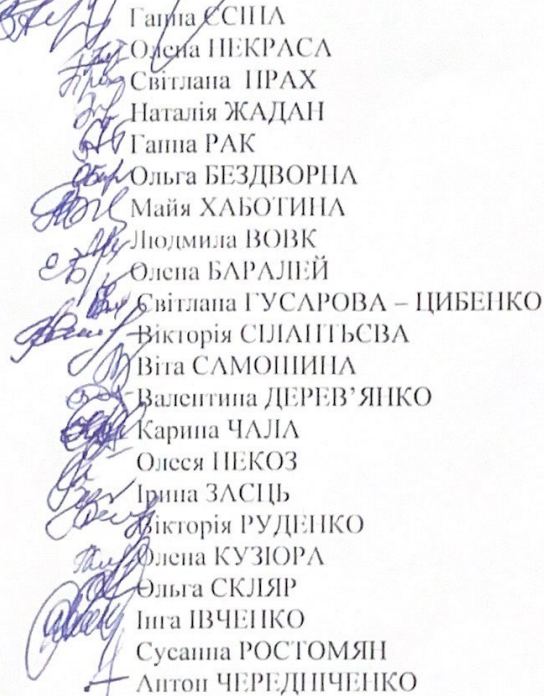 Ганна ЄСІПА
Олена НЕКРАСА
Світлана ПРАХ
Наталія ЖАДАН
Ганна РАК
Ольга БЕЗДВОРНА
Майя ХАБОТИНА
Людмила ВОВК
Олена БАРАЛЕЙ
Світлана ГУСАРОВА – ЦИБЕНКО
Вікторія СІЛАНТЬЄВА
Віта САМОШИНА
Валентина ДЕРЕВ’ЯНКО
Карина ЧАЛА
Олеся НЕКОЗ
Ірина ЗАЄЦЬ
Вікторія РУДЕНКО
Олена КУЗЮРА
Ольга СКЛЯР
Інга ІВЧЕНКО
Сусанна РОСТОМЯН
Антон ЧЕРЕДНІЧЕНКО